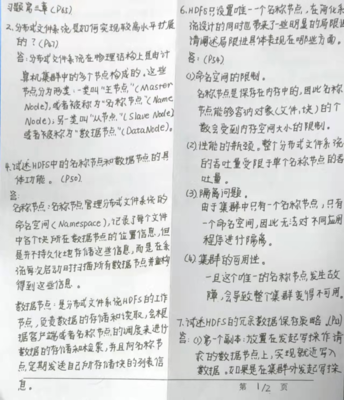 习题第三章(P65)
2.分布式文件系统是如何实现较高水平扩展
的?(P47)
答:分布式文件系统在物理结构上是由计
算机集群中的多个节点构成的,这些
节点分为两类:一类叫"主节点"(Master
Node),或者被称为"名称节点"(Name
Node);另一类叫"从节点"(Slave Node)
或者被称为"数据节点"(DataNode)。
4.试述HDFS中的名称节点和数据节点的具
体功能。(P50)
答:
名称节点:名称节点管理分布式文件系统的
命名空间(Namespace),记录了每个文件
中各个块所在数据节点的位置信息,但
是并不持久化地存储这些信息,而是在系
统每次启动时扫描所有数据节点并重构
得到这些信息。
数据节点:是分布式文件系统HDFS的工作
节点,负责数据的存储和读取,会根据
客户端或者名称节点的调度来进行
数据的存储和检索,并且向名称节
点定期发送自己所存储块的列表信
息。
6.HDFS只设置唯一一个名称节点,在简化系
统设计的同时也带来了一些明显的局限性,
请阐述局限性具体表现在哪些方面。
答:(P54)
(1)命名空间的限制。
名称节点是保存在内存中的,因此名称
节点能够容纳对象(文件,块)的个
数会受到内存空间大小的限制。
(2)性能的瓶颈。整个分布式文件系统
的吞吐量受限于单个名称节点的吞
吐量。
(3)隔离问题。
由于集群中只有一个名称节点,只有
一个命名空间,因此无法对不同应用
程序进行隔离。
(4)集群的可用性。
一旦这个唯一的名称节点发生故
障,会导致整个集群变得不可用。
7.试述HDFS的冗余数据保存策略。
答:(1)第一个副本:放置在发起写操作请
求的数据节点上,实现就近写入
数据。如果是在集群外发起写操
第 1/2 页